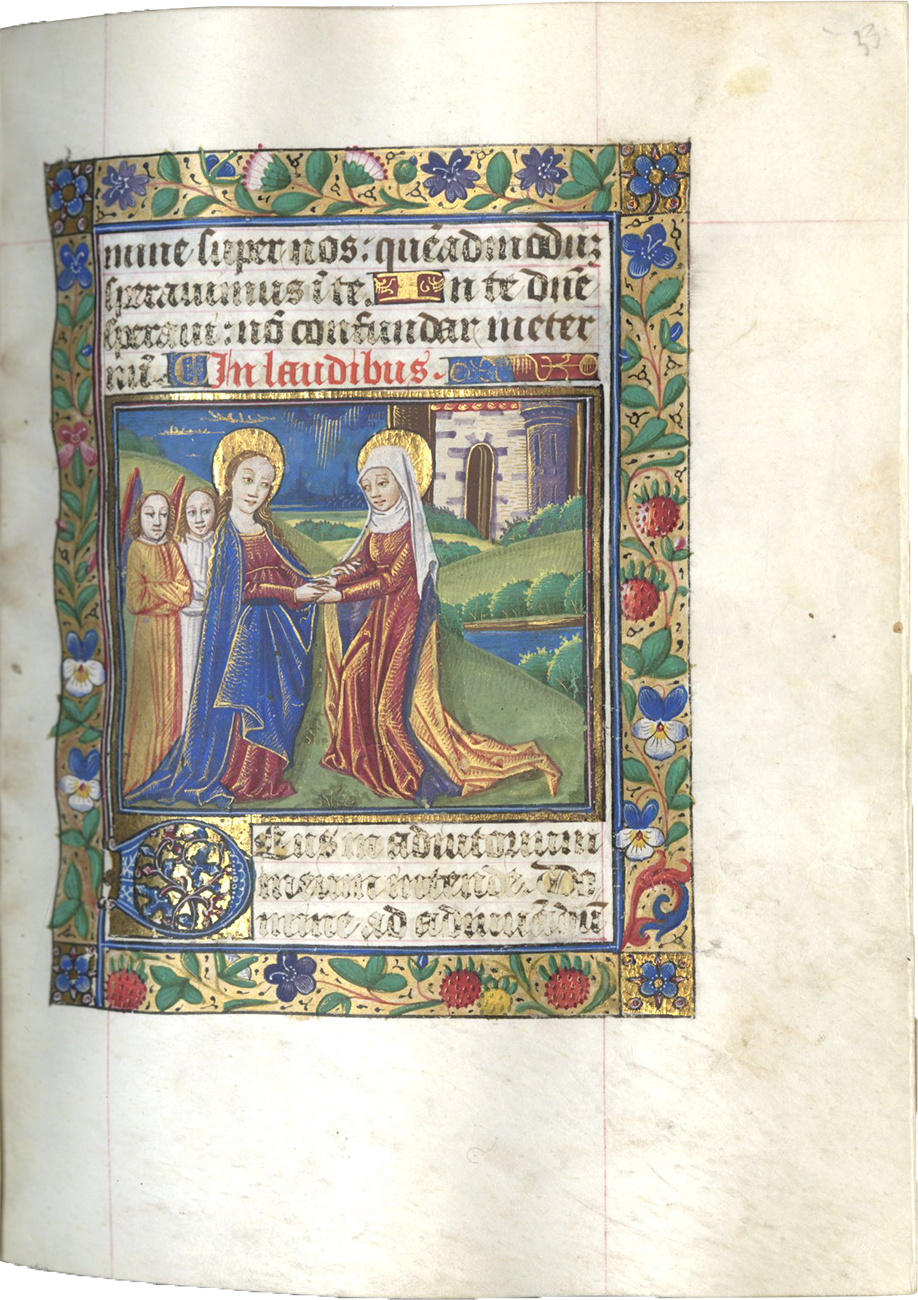 33
mine super nos: quēadmoduȝ
sperauimus ī te. In te dn̄e
speraui: nō confundar in eter
nū. In laudibus.
Deus in adiutorium
meum intende. Do
mine ad adiuuādū